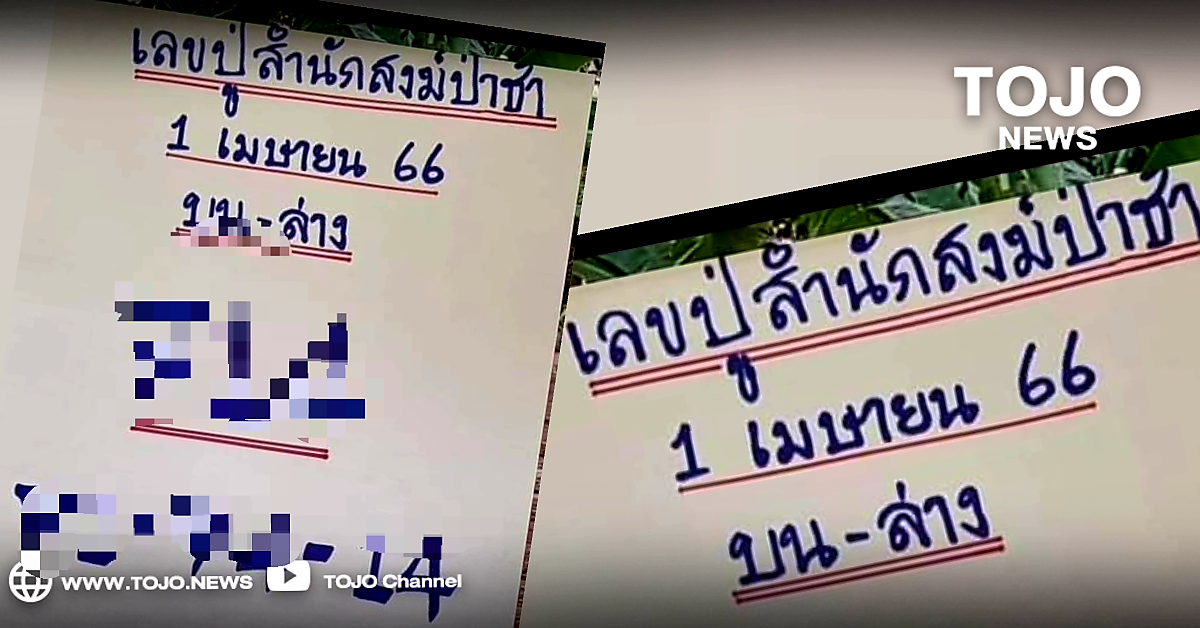 เลขปู่สำนักสงฆ์ป่าช้า
1 เมษายน 66
บน-ล่าง
14
WWW.TOJO.NEWS
TOJO Channel
TOJO
NEWS
เลขปู่สำนักสงฆ์ป่าช้า
1 เมษายน 66
บน-ล่าง